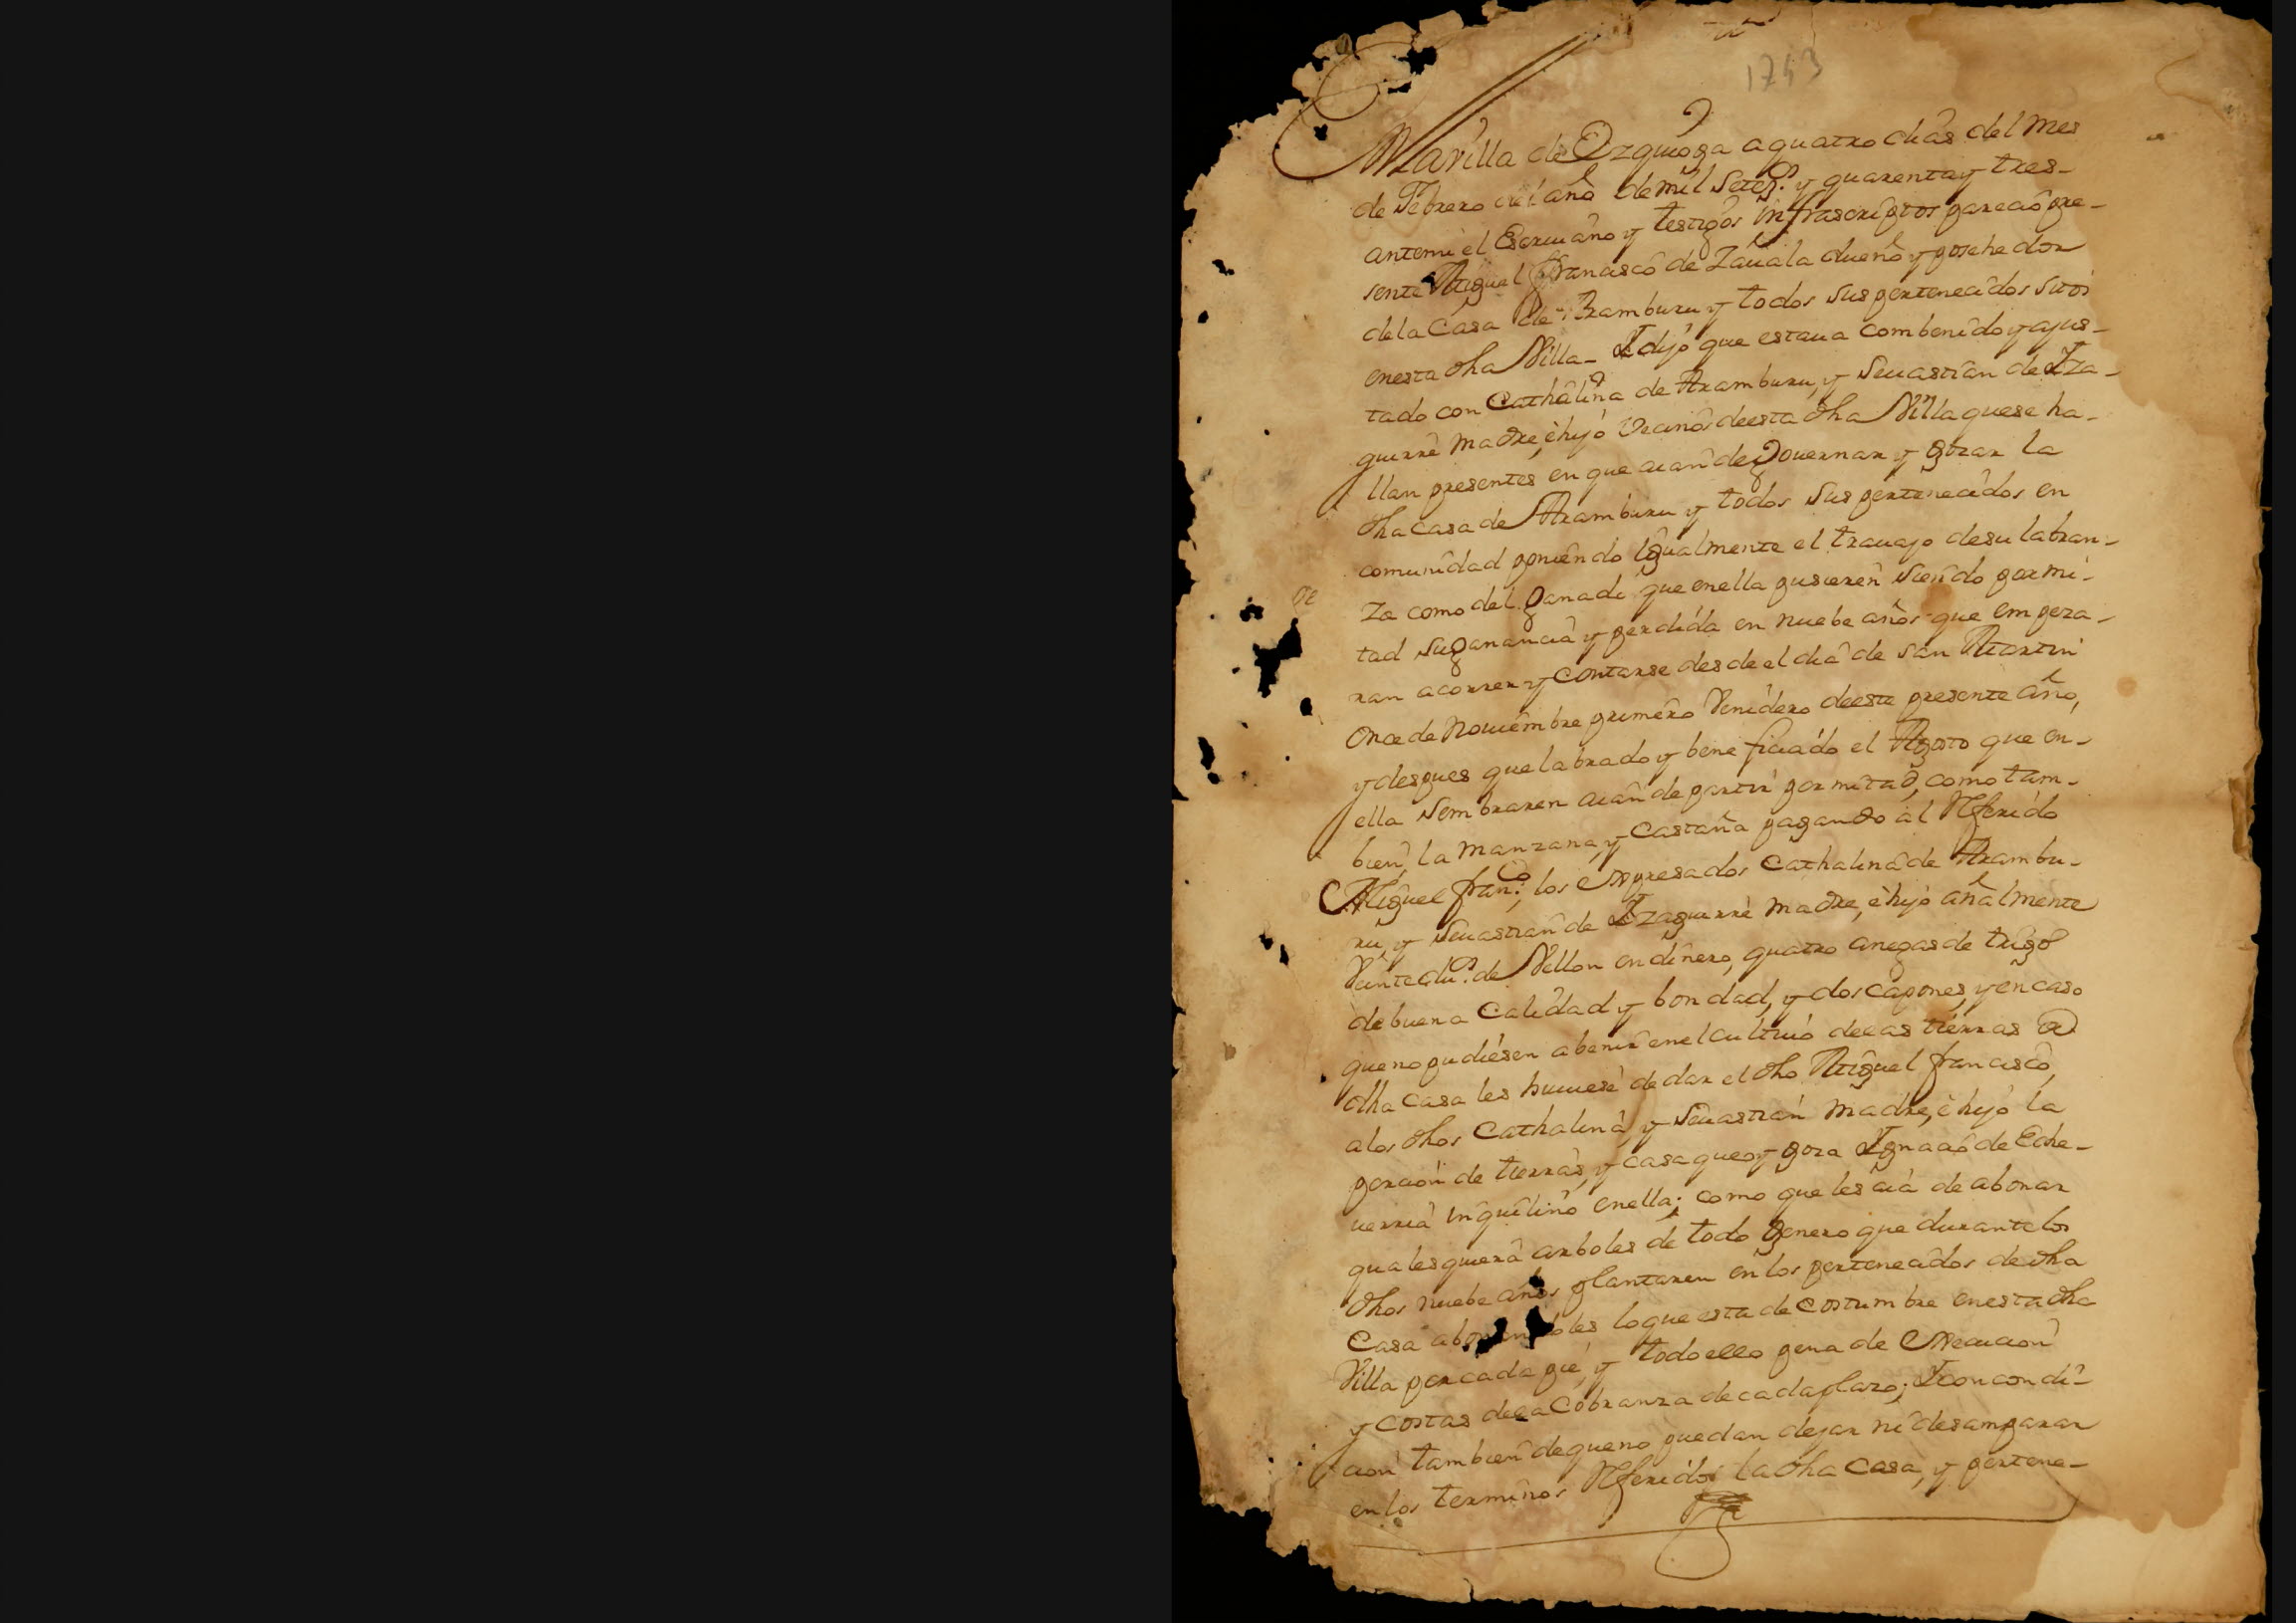 1743
En la Villa de Ezquioga a quatro dias del mes
de Febrero del año de mil Setez.s y quarenta y tres-
antemi el Escriuano y testigos infrascriptos pareció pre-
sente Miguel Francisco de Zauala dueño y posehedor
dela Casa de Aramburu y todos sus pertenecidos sitos
enesta dha Villa- Y dijo que estaua combenido y ajus-
tado con Cathalina de Aramburu, y Seuastian de Yza-
guirre madre, è hijo Vecinos deesta dha Villa quese ha-
llan presentes, en que aian de gouernar y gozar la
dha casa de Aramburu y todos sus pertenecidos en
comunidad poniendo igualmente el trauajo desu labran-
za como del ganado que enella pusieren siendo por mi-
tad su ganancia y perdida en nuebe años que empeza-
ran acorrer y Contarse desde el dia de san Martin
Once de Nouiembre primero Venidero deeste presente año,
y despues que labrado y beneficiado el Agosto que en-
ella sembraren aian de partir por mitad, como tam-
bien la manzana, y Castaña pagando al Referido
Miguel fran.co, los expresados Cathalina de Arambu-
ru, y Seuastian de Yzaguirre madre, è hijo añalmente
Veinte du.s de Vellon en dinero, quatro anegas de trigo
de buena Calidad y bondad, y dos capones, y en caso
que no pudiesen abenir enel cultiuo delas tierras de
dha casa les huuiese de dar el dho Miguel francisco,
a los dhos Cathalina, y Seuastian madre, è hijo la
porcion de tierras, y casa que oy goza Ygnacio de Eche-
uerria inquilino enella; como que les aia de abonar
qualesquiera arboles de todo genero que durante los
dhos nuebe años plantaren en los pertenecidos de dha
Casa abonandoles loque esta de costumbre enesta dha
Villa por cada pie, y todo ello pena de execucion
y costas dela Cobranza de cada plazo; Y con condi-
cion tambien de que no puedan dejar ni desamparar
en los terminos Referidos la dha casa, y pertene-